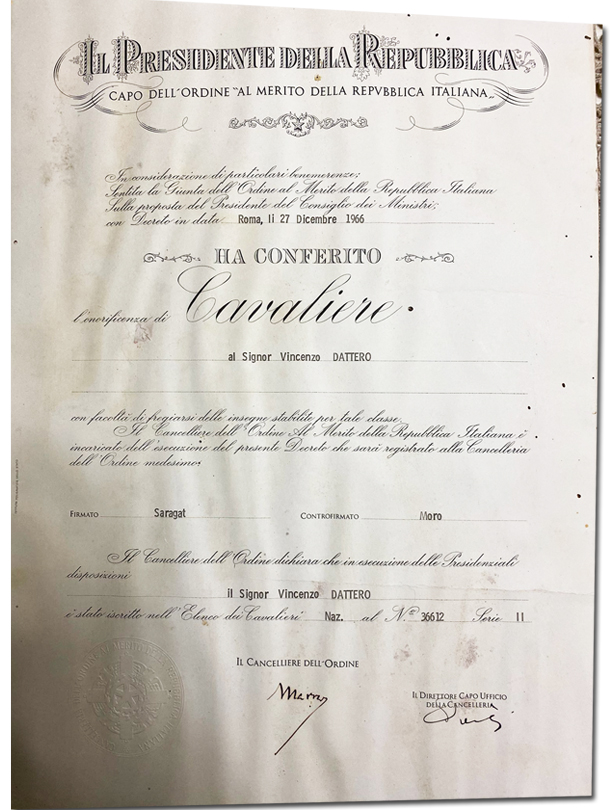 IL PRESIDENTE DELLA REPUBBLICA
CAPO DELL'ORDINE "AL MERITO DELLA REPVBBLICA ITALIANA"
In considerazione di particolari benemerenze;
Sentita la Giunta dell'Ordine al Merito della Repubblica Italiana
Sulla proposta del Presidente del Consiglio dei Ministri;
con Decreto in data Roma, li 27 Dicembre 1966
HA CONFERITO
l'onorificenza di Cavaliere
al Signor Vincenzo DATTERO
con facoltà di fregiarsi delle insegne stabilite per tale classe.
Il Cancelliere dell'Ordine Al Merito della Repubblica Italiana è
incaricato dell'esecuzione del presente Decreto che sarà registrato alla Cancelleria
dell'Ordine medesimo.
FIRMATO Saragat CONTROFIRMATO Moro
Il Cancelliere dell'Ordine dichiara che in esecuzione delle Presidenziali
disposizioni
il Signor Vincenzo DATTERO
è stato iscritto nell'Elenco dei Cavalieri Naz. al N.º 36612 Serie II
IL CANCELLIERE DELL'ORDINE
IL DIRETTORE CAPO UFFICIO
DELLA CANCELLERIA